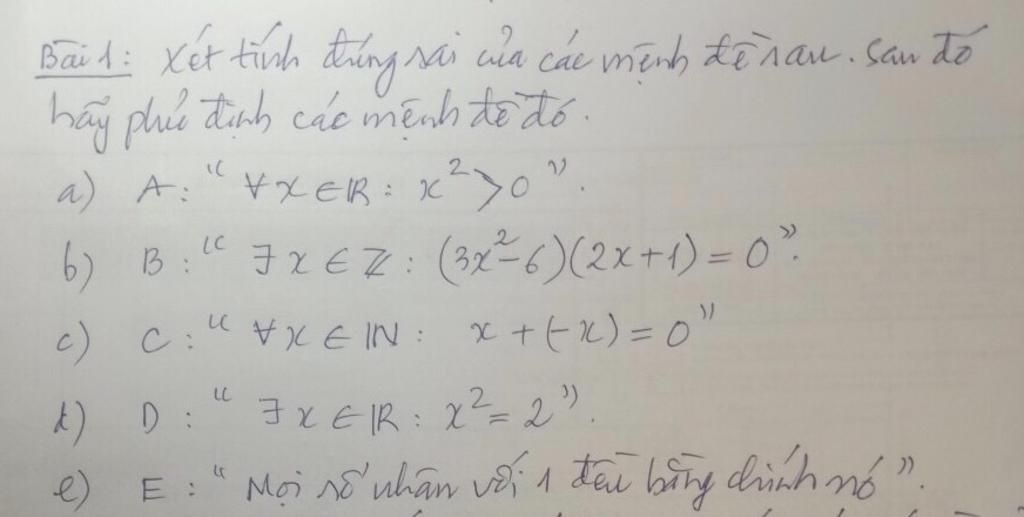 Bài 1: Xét tính đúng sai của các mệnh đề sau. Sau đó
hãy phủ định các mệnh đề đó.
a) A: "∀x ∈ ℝ: x² > 0".
b) B: "∃x ∈ ℤ: (3x² - 6)(2x + 1) = 0".
c) C: "∀x ∈ ℕ: x + (-x) = 0"
d) D: "∃x ∈ ℝ: x² = 2".
e) E: "Mọi số nhân với 1 đều bằng chính nó".